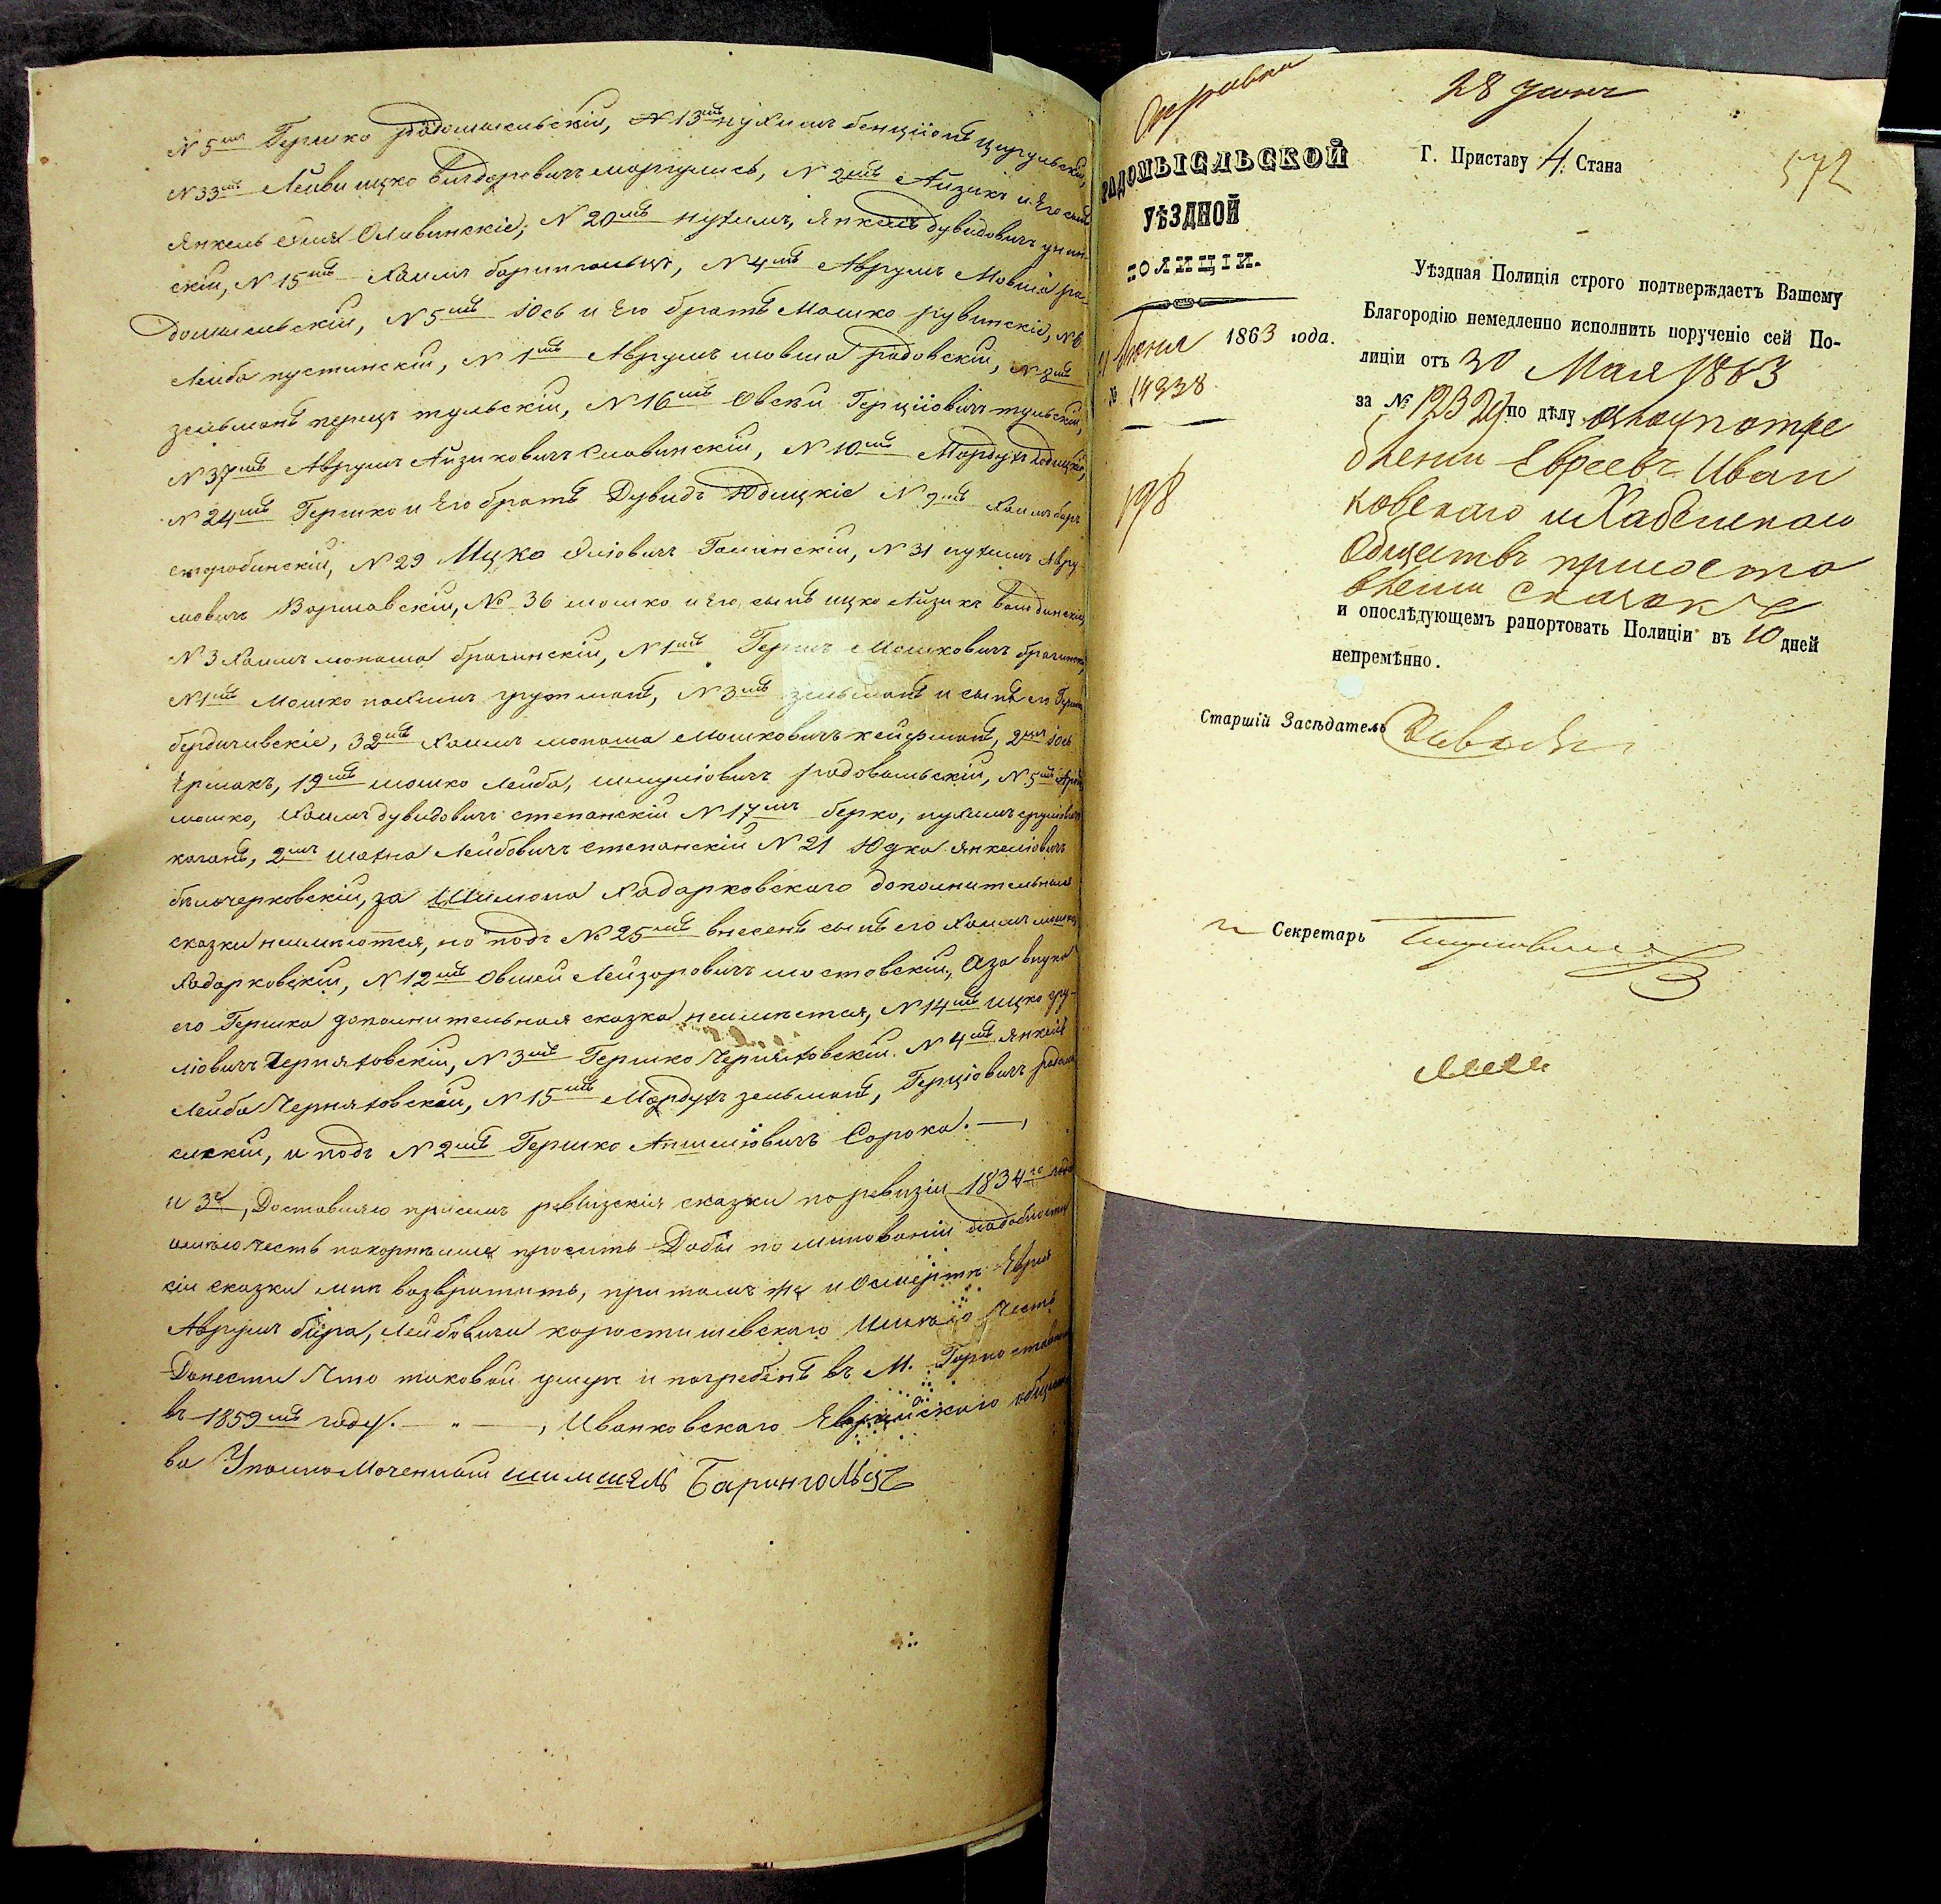 N 5мъ Гершко Радомысльскій, N 13мъ Нухимъ Бенціонъ
N 33мъ Лейви Ицко Вигдоровичъ Маргулисъ, N 2мъ Айзикъ и Его сынъ
Янкель Славинскіе, N 20мъ Нухимъ, Янкель Дувидовичъ
скій, N 15мъ Хаимъ Барингольцъ, N 4мъ Аврумъ Мовша Ра-
домысльскій, N 5мъ Іось и Его братъ Мошко Рувинскіе, N 6
Лейба Пустинскій, N 1мъ Аврумъ Мовша Радовскій, N 8мъ
Зельманъ Перецъ Тульскій, N 16мъ Овсей Герціовичъ Тульскій,
N 37мъ Аврумъ Айзиковичъ Славинскій, N 10мъ Мордухъ Юдицкій,
N 24мъ Гершко и Его братъ Дувидъ Юдицкіе N 9мъ Хаимъ Бер
старобинскій, N 29 Ицко Эліовичъ N 31 Нухимъ Авру-
мовичъ Варшавскій, № 36 Мошко и Его сынъ Ицко Айзикъ
N 3 Хаимъ Монаша Брагинскій, N 1мъ Гершъ Мошковичъ Брагинскій,
N 1мъ Мошко Нахимъ N 3мъ Зельманъ и сынъ его Гершко
Бердичевскіе, 32мъ Хаимъ Монаша Мошковичъ Кейфманъ, 2мъ Іось
Ермакъ, 19мъ Мошко Лейба, Шмуліовичъ Радовильскій, N 5мъ
Мошко, Хаимъ Дувидовичъ Степанскій N 17мъ Берко, Нухимъ Сруліовичъ
Каганъ, 2мъ Шахна Лейбовичъ Степанскій N 21 Юдка Янкеліовичъ
Белоцерковскій, за Шимона Ходорковскаго дополнительныя
сказки неимеются, но подъ № 25мъ внесенъ сынъ его Хаимъ Мошко
Ходорковскій, N 12мъ Овшей Лейзоровичъ Мостовскій, А за внука
его Гершка дополнительная сказка неимеется, N 14мъ Ицко Сру-
ліовичъ Черняховскій, N 3мъ Гершко Черняховскій. N 4мъ Янкель
Лейба Черняховскій, N 15мъ Мордухъ Зельманъ, Герціовичъ Радомы
сльскій, и подъ N 2мъ Гершко Аншеліовичъ Сорока. —,
и 3е, Доставляю присемъ ревизскія сказки по ревизіи 1834го года
имею честь покорнейше просить Дабы по минованіи надобности
сіи сказки мне возвратить, притомъ же и О смерти Еврея
Аврумъ Бера, Лейбовича Коростишевскаго Имею Честь
Донести Что таковой умеръ и погребенъ въ М. Горностайполе
въ 1859мъ году. — " —, Иванковскаго Еврейскаго общест
ва Уполномоченный Шимшель Барингольцъ
Справка
РАДОМЫСЛЬСКОЙ
УѢЗДНОЙ
ПОЛИЦІИ.
Іюня 1863 года.
№ 14338
198
28 Іюня
Г. Приставу 4 Стана
572
Уѣздная Полиція строго подтверждаетъ Вашему
Благородію немедленно исполнить порученіе сей По-
лиціи отъ 30 Мая 1863
за № 12329 по дѣлу о злоупотре
бленіи Евреевъ Иван
ковскаго и Хабенскаго
Обществъ при соста
вленіи сказокъ
и опослѣдующемъ рапортовать Полиціи въ 10 дней
непремѣнно.
Старшій Засѣдатель
Секретарь